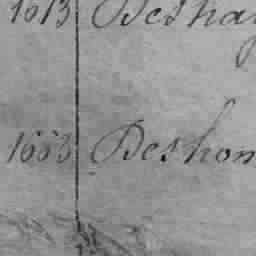 1613 Deshay
1663 Deshon